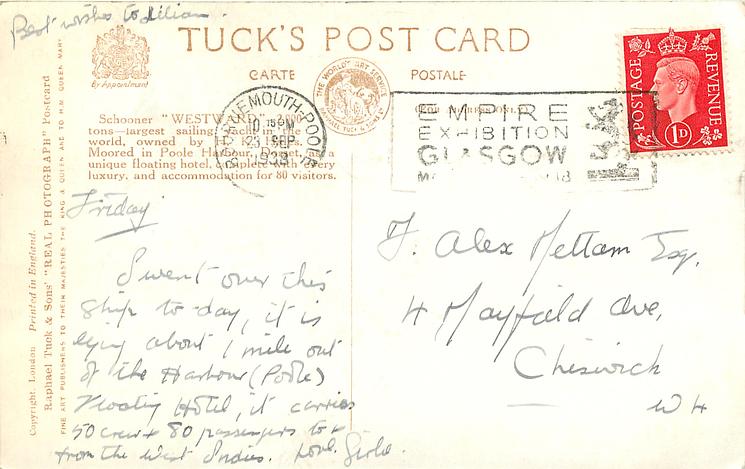 Best wishes to Lilian.
TUCK'S POST CARD
CARTE POSTALE
By Appointment
THE WORLD'S ART SERVICE
Schooner "WESTWARD"
tons—largest sailing yacht in the
world, owned by
Moored in Poole Harbour, Dorset, as a
unique floating hotel, equipped with every
luxury, and accommodation for 80 visitors.
BOURNEMOUTH-POOLE
15 PM
23 SEP
1938
EMPIRE
EXHIBITION
GLASGOW
POSTAGE REVENUE
1D
Friday
I went over this
ship to-day, it is
lying about 1 mile out
of the Harbour (Poole)
Floating Hotel, it carries
50 crew + 80 passengers to +
from the West Indies. Love.
F. Alex Mettam Esq.
4 Mayfield Ave,
Chiswick
W4
Copyright. London Printed in England.
Raphael Tuck & Sons' "REAL PHOTOGRAPH" Postcard
FINE ART PUBLISHERS TO THEIR MAJESTIES THE KING & QUEEN AND TO H.M. QUEEN MARY